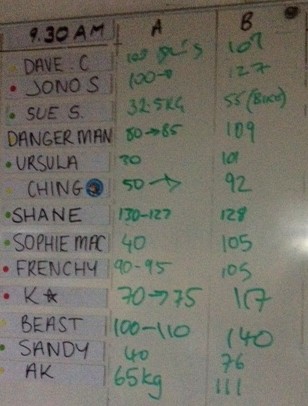 9.30 AM A B
DAVE. C 105 107
JONO S 100→ 127
SUE S. 32.5KG 55 (BIKE)
DANGER MAN 80→85 109
URSULA 70 101
CHING 50→ 92
SHANE 130-127 128
SOPHIE MAC 40 105
FRENCHY 90-95 105
K☆ 70→75 117
BEAST 100-110 140
SANDY 40 76
AK 65kg 111